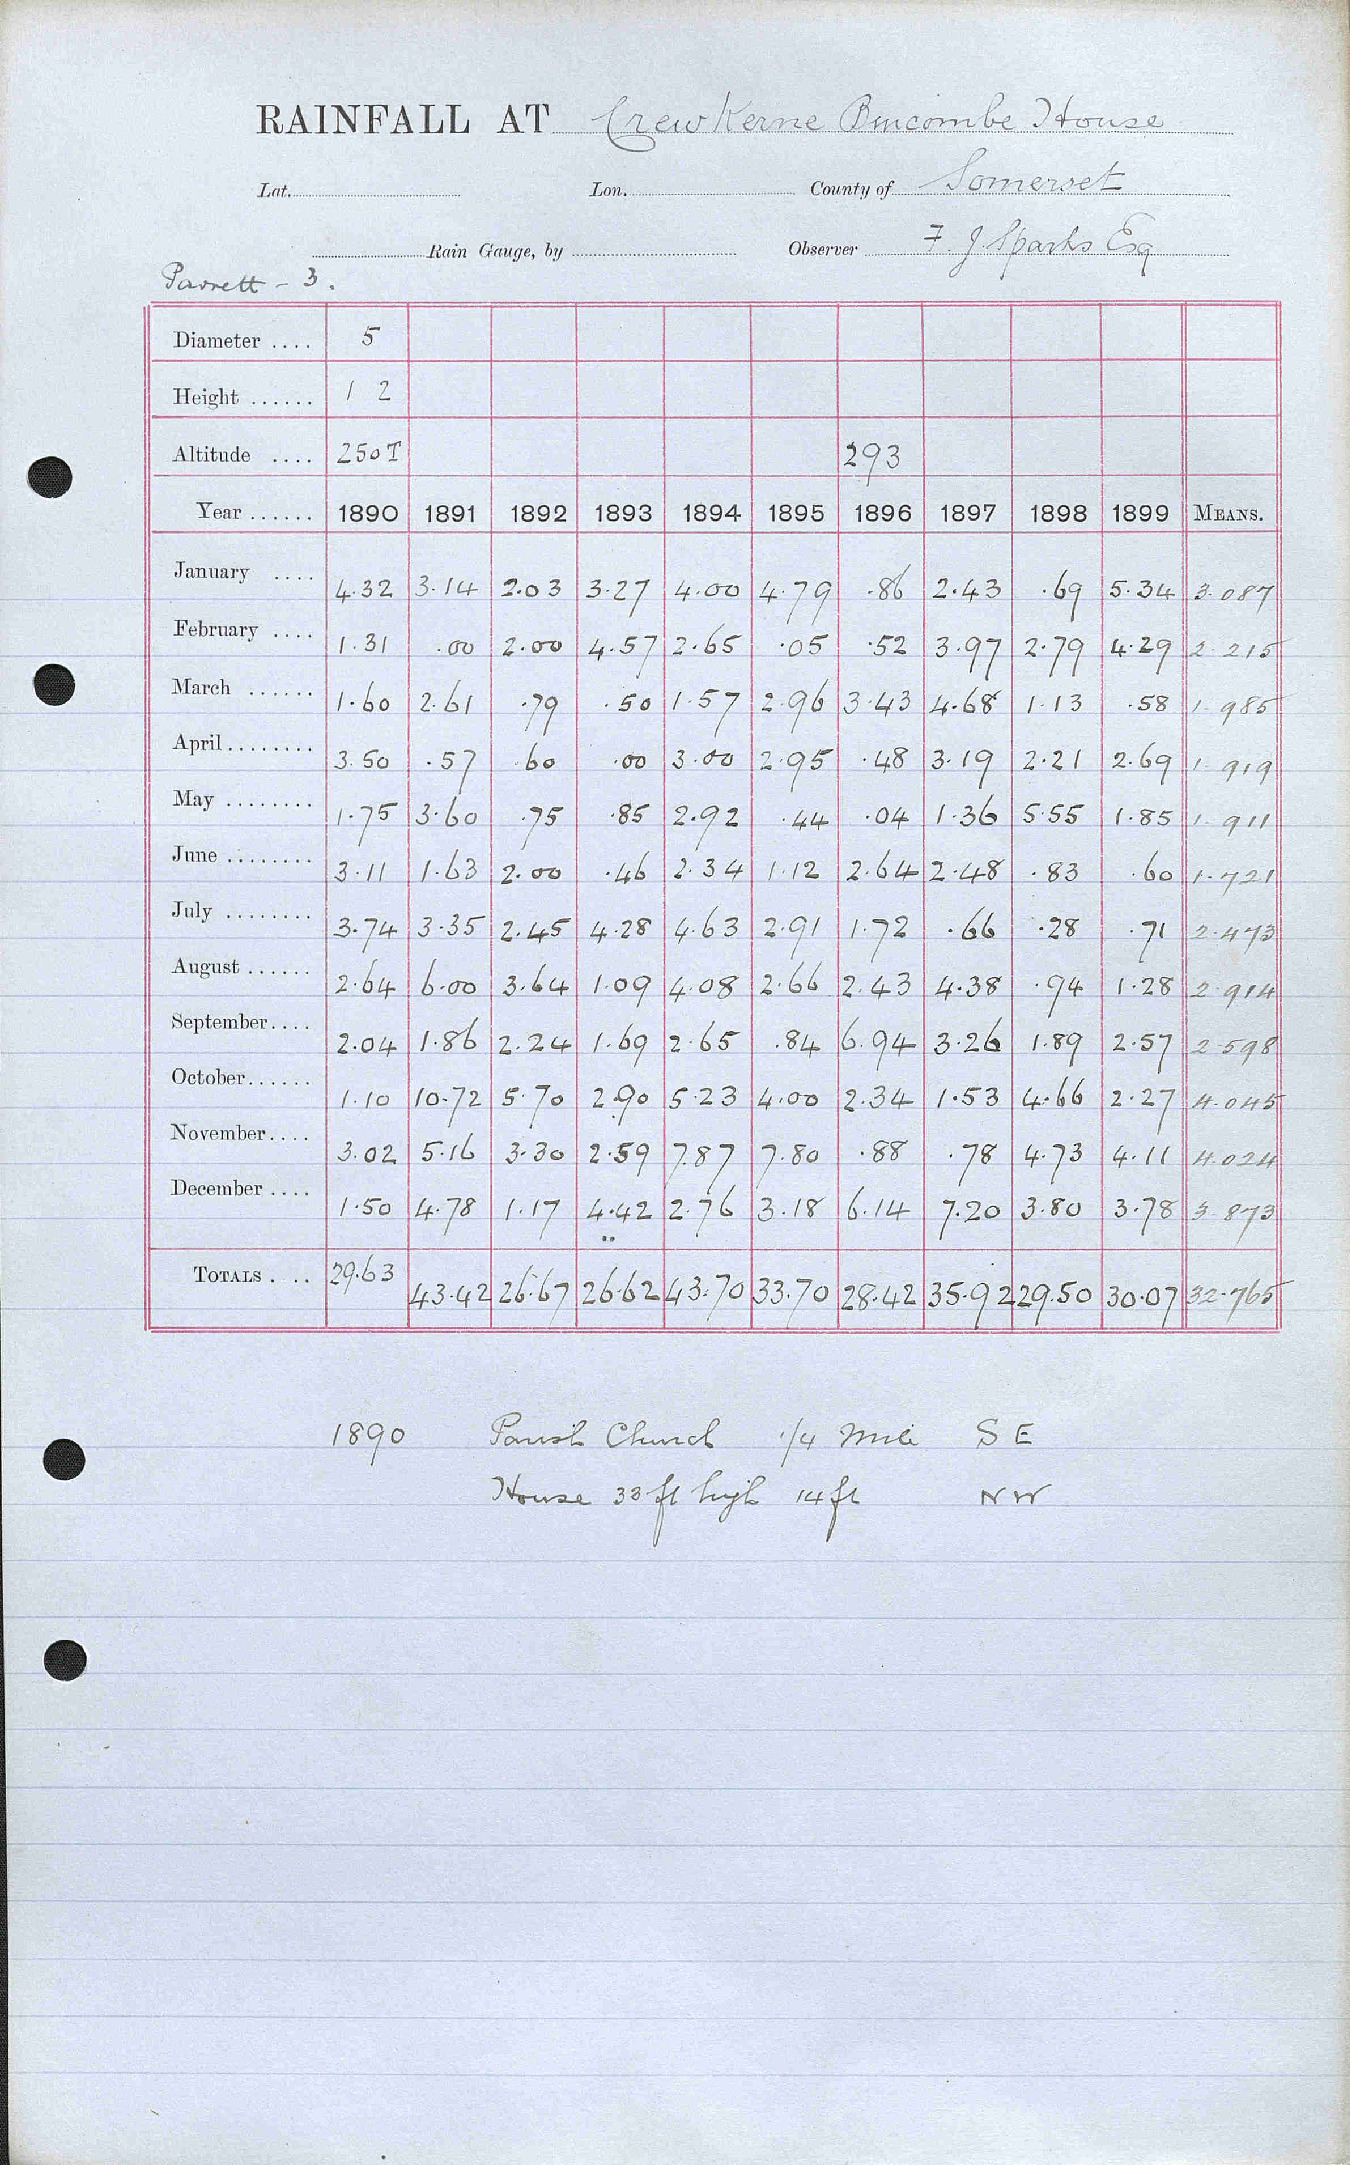 RAINFALL AT Crewkerne Bincombe House
Lat. Lon. County of Somerset
Rain Gauge, by Observer F. J. Sparks Esq
Parrett - 3.
Diameter .... 5
Height ...... 1 2
Altitude .... 250T 293
Year ...... 1890 1891 1892 1893 1894 1895 1896 1897 1898 1899 MEANS.
January .... 4.32 3.14 2.03 3.27 4.00 4.79 .86 2.43 .69 5.34 3.087
February .... 1.31 .00 2.00 4.57 2.65 .05 .52 3.97 2.79 4.29 2.215
March ...... 1.60 2.61 .79 .50 1.57 2.96 3.43 4.68 1.13 .58 1.985
April........ 3.50 .57 .60 .00 3.00 2.95 .48 3.19 2.21 2.69 1.919
May ........ 1.75 3.60 .75 .85 2.92 .44 .04 1.36 5.55 1.85 1.911
June ........ 3.11 1.63 2.00 .46 2.34 1.12 2.64 2.48 .83 .60 1.721
July ........ 3.74 3.35 2.45 4.28 4.63 2.91 1.72 .66 .28 .71 2.473
August ...... 2.64 6.00 3.64 1.09 4.08 2.66 2.43 4.38 .94 1.28 2.914
September.... 2.04 1.86 2.24 1.69 2.65 .84 6.94 3.26 1.89 2.57 2.598
October...... 1.10 10.72 5.70 2.90 5.23 4.00 2.34 1.53 4.66 2.27 4.045
November.... 3.02 5.16 3.30 2.59 7.87 7.80 .88 .78 4.73 4.11 4.024
December .... 1.50 4.78 1.17 4.42 2.76 3.18 6.14 7.20 3.80 3.78 3.873
TOTALS . ... 29.63 43.42 26.67 26.62 43.70 33.70 28.42 35.92 29.50 30.07 32.765
1890 Parish Church 1/4 Mile S E
House 33 ft high 14 ft N W